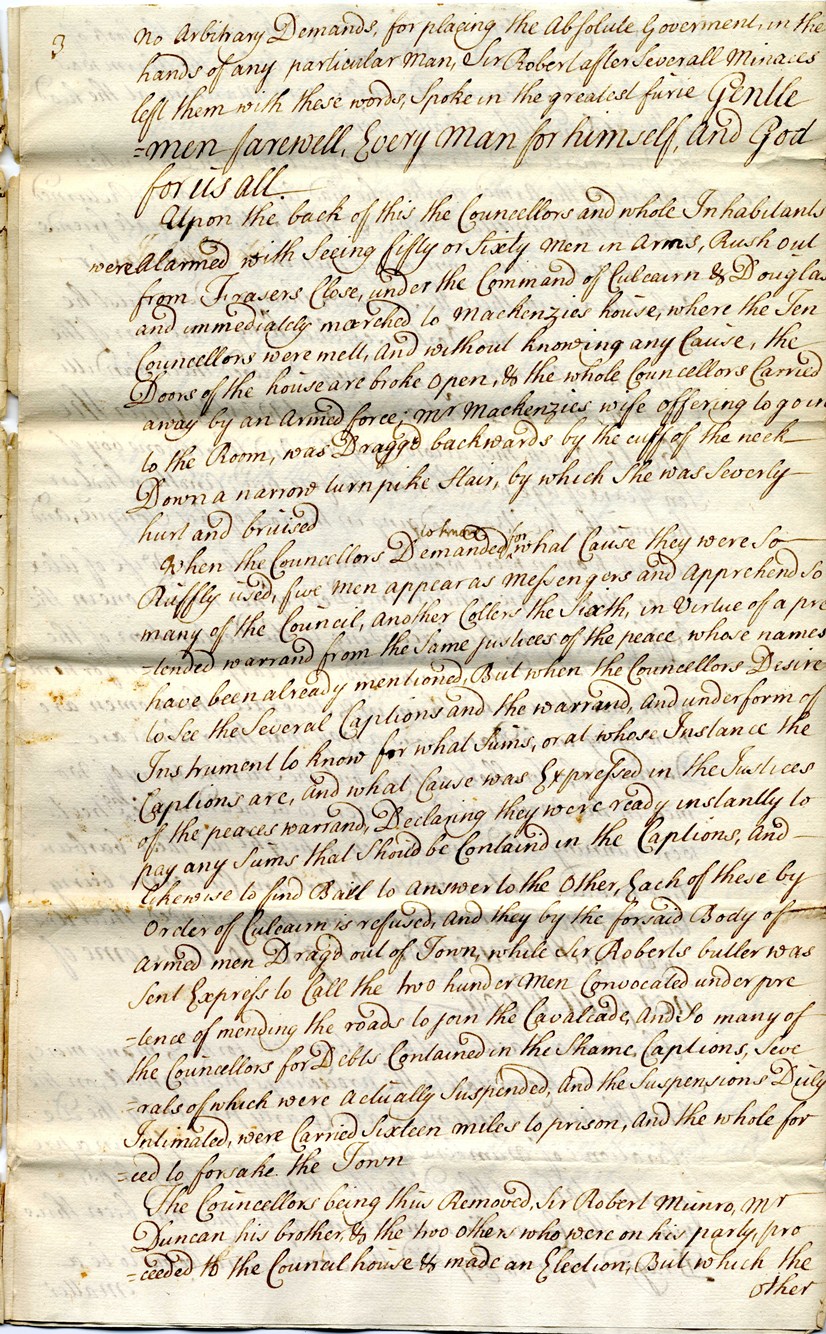 3
no Arbitrary Demands, for placing the Absolute Goverment, in the
hands of any particular Man, Sir Robert after Severall Minaces
left them with these words, Spoke in the greatest furie Gentle
=men farewell, Every Man for himself, And God
for us all
Upon the back of this the Councellors and whole Inhabitants
were Alarmed with Seeing fifty or Sixty Men in Arms, Rush out
from Frasers Close, under the Command of Culcairn & Douglas
and immediately marched to Mackenzies house, where the Ten
Councellors were mett, And without knowing any Cause, the
Doors of the house are broke open, & the whole Councellors Carried
away by an Armed force; Mr Mackenzies wife offering to go in
to the Room, was Dragg'd backwards by the cuff of the neck
Down a narrow turnpike Stair, by which She was Severly
hurt and bruised
When the Councellors Demanded to know for what Cause they were So
Ruffly used, five men appear as Messengers and Apprehend So
many of the Council, Another Collers the Sixth, in Virtue of a pre
=tended warrand from the Same justices of the peace whose names
have been already mentioned, But when the Councellors Desire
to See the Several Captions and the warrand, And under form of
Instrument to know for what Sums, or at whose Instance the
Captions are, And what Cause was Expressed in the Justices
of the peaces warrand, Declaring they were ready instantly to
pay any Sums that Should be Containd in the Captions, And
likewise to find Bail to Answer to the Other, Each of these by
Order of Culcairn is refused, And they by the forsaid Body of
Armed men Dragd out of Town, while Sir Roberts butler was
Sent Express to Call the two hunder Men Convocated under pre
=tence of mending the roads to join the Cavalcade, And So many of
the Councellors for Debts Contained in the Shame Captions, Seve
=rals of which were Actually Suspended, And the Suspensions Duly
Intimated, were Carried Sixteen miles to prison, And the whole for
=ced to forsake the Town
The Councellors being thus Removed, Sir Robert Munro, Mr
Duncan his brother, & the two others who were on his party, pro
=ceeded to the Council house & made an Election; But which the
other